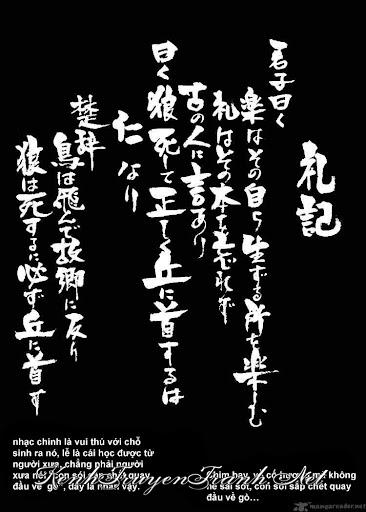 礼記
君子曰く
楽はその自ら生ずる所を楽しむ
礼はその本を忘れず
古の人に言あり
曰く狼死して正しく丘に首するは
仁なり
楚辞
鳥は飛んで故郷に反り
狼は死するに必ず丘に首す
nhạc chính là vui thú với chỗ
sinh ra nó, lễ là cái học được từ
người xưa, chẳng phải người
xưa nói con sói sắp chết quay
đầu về "gò", đấy là nhân vậy.
Chim bay về cố hương mà không
hề sai sót, con sói sắp chết quay
đầu về gò...
KenhTruyenTranh.Net
mangareader.net